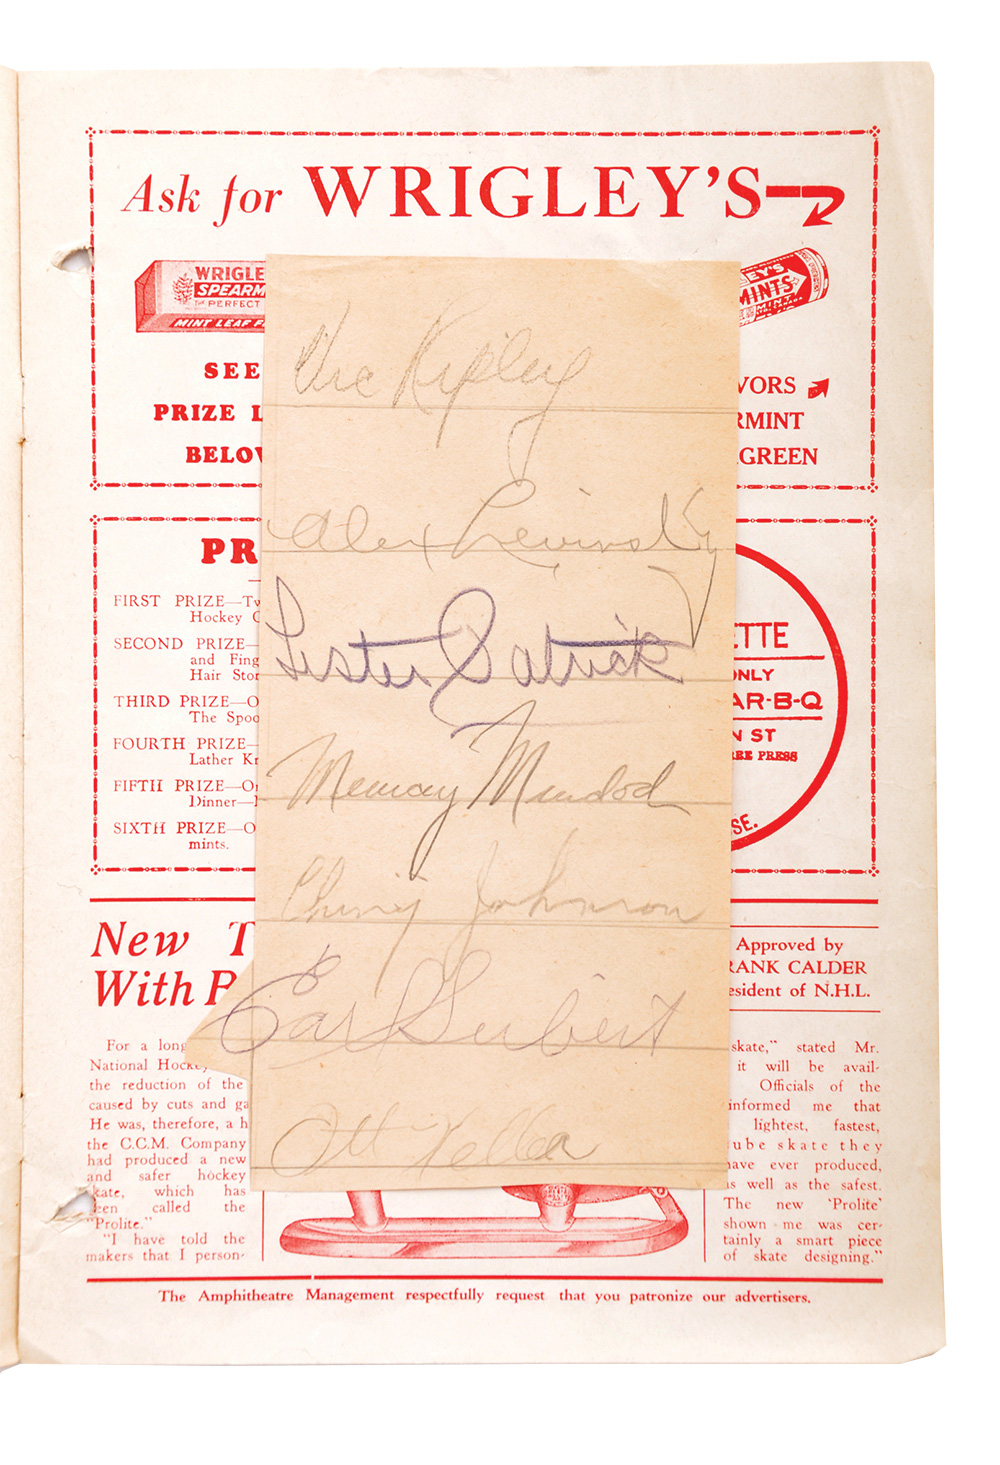 Ask for WRIGLEY'S
WRIGLE
SPEARM
THE PERFECT
MINT LEAF F
EY'S
MINTS
SEE
PRIZE L
BELOW
VORS
RMINT
GREEN
Vic Ripley
Alex Levinsky
Lester Patrick
Murray Murdoch
Ching Johnson
Earl Seibert
Ott Heller
PR
FIRST PRIZE—Tw
Hockey C
SECOND PRIZE—
and Fing
Hair Stor
THIRD PRIZE—O
The Spoo
FOURTH PRIZE—
Lather Kr
FIFTH PRIZE—O
Dinner—
SIXTH PRIZE—O
mints.
ETTE
ONLY
AR-B-Q
N ST
RE PRESS
SE.
New T
With P
Approved by
RANK CALDER
esident of N.H.L.
For a long
National Hockey
the reduction of the
caused by cuts and ga
He was, therefore, a h
the C.C.M. Company
had produced a new
and safer hockey
skate, which has
been called the
"Prolite."
"I have told the
makers that I person-
skate," stated Mr.
it will be avail-
Officials of the
informed me that
lightest, fastest,
ube skate they
have ever produced,
as well as the safest.
The new 'Prolite'
shown me was cer-
tainly a smart piece
of skate designing."
The Amphitheatre Management respectfully request that you patronize our advertisers.